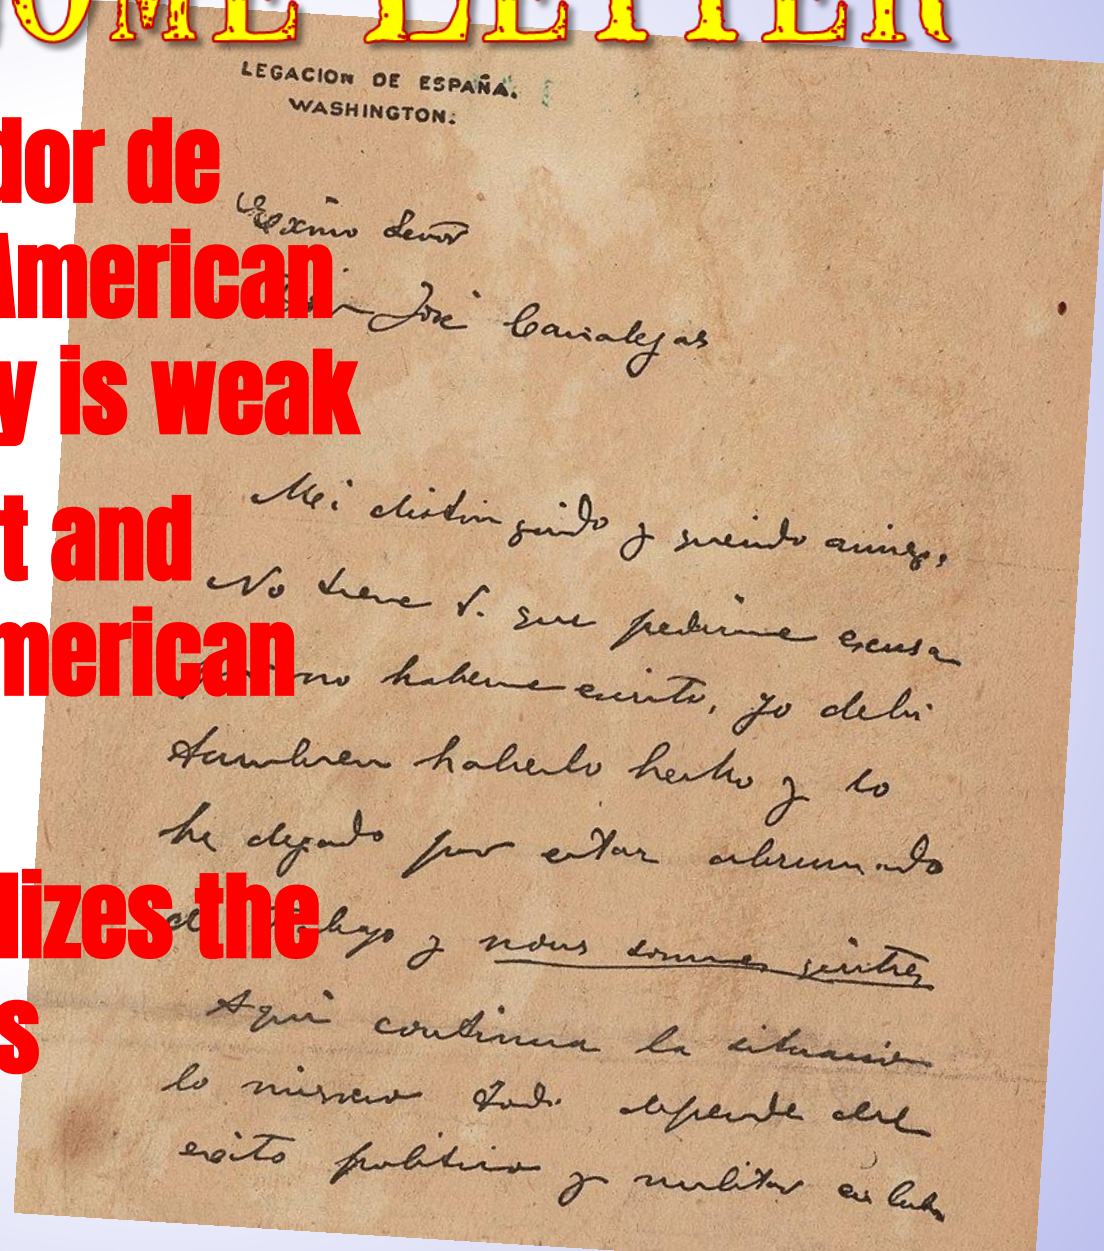 OME LETTER
dor de
American
y is weak
t and
merican
lizes the
s
LEGACION DE ESPAÑA.
WASHINGTON.
Exmo Señor
Don José Canalejas
Mi distinguido y querido amigo,
No tiene V. que pedirme excusa
por no haberme escrito, yo debi
tambien haberlo hecho y lo
he dejado por estar abrumado
de trabajo y nous sommes quittes
Aqui continua la situacion
lo mismo todo depende del
exito politico y militar en Cuba